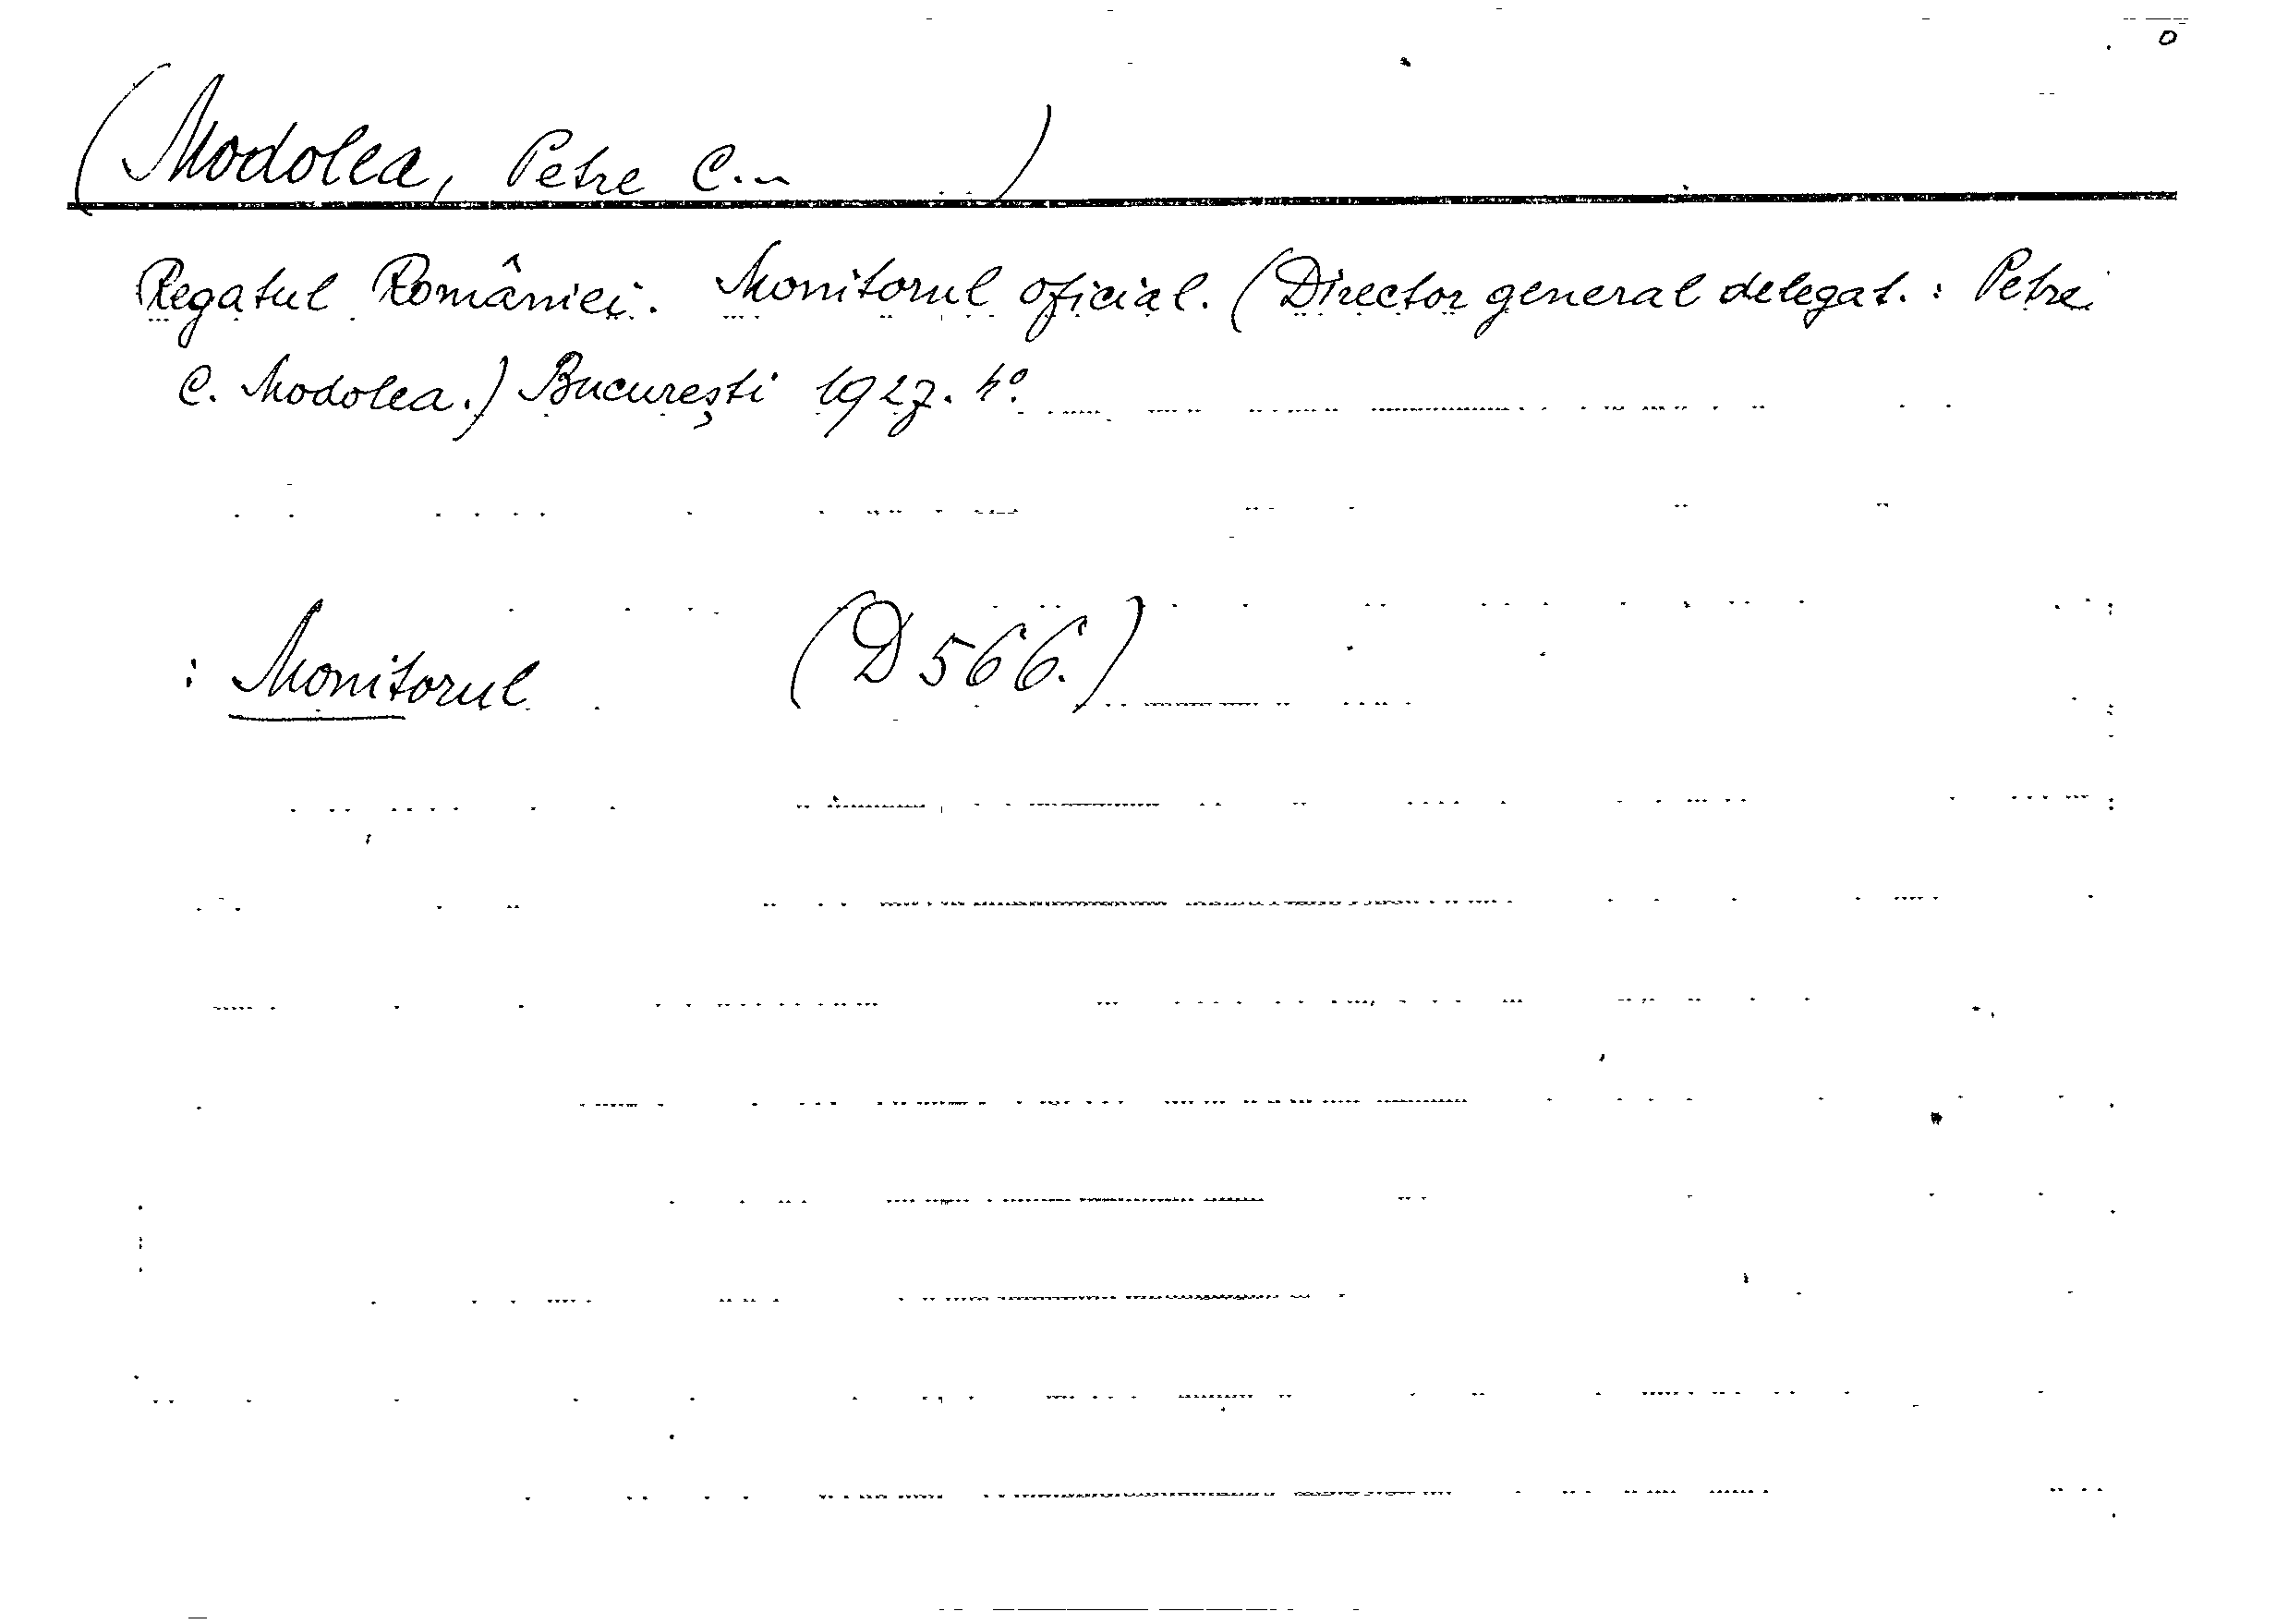 (Modolea, Petre C. )
Regatul României. Monitorul oficial. (Director general delegat. : Petre
C. Modolea.) București 1927. 4º.
: Monitorul (D 566.)